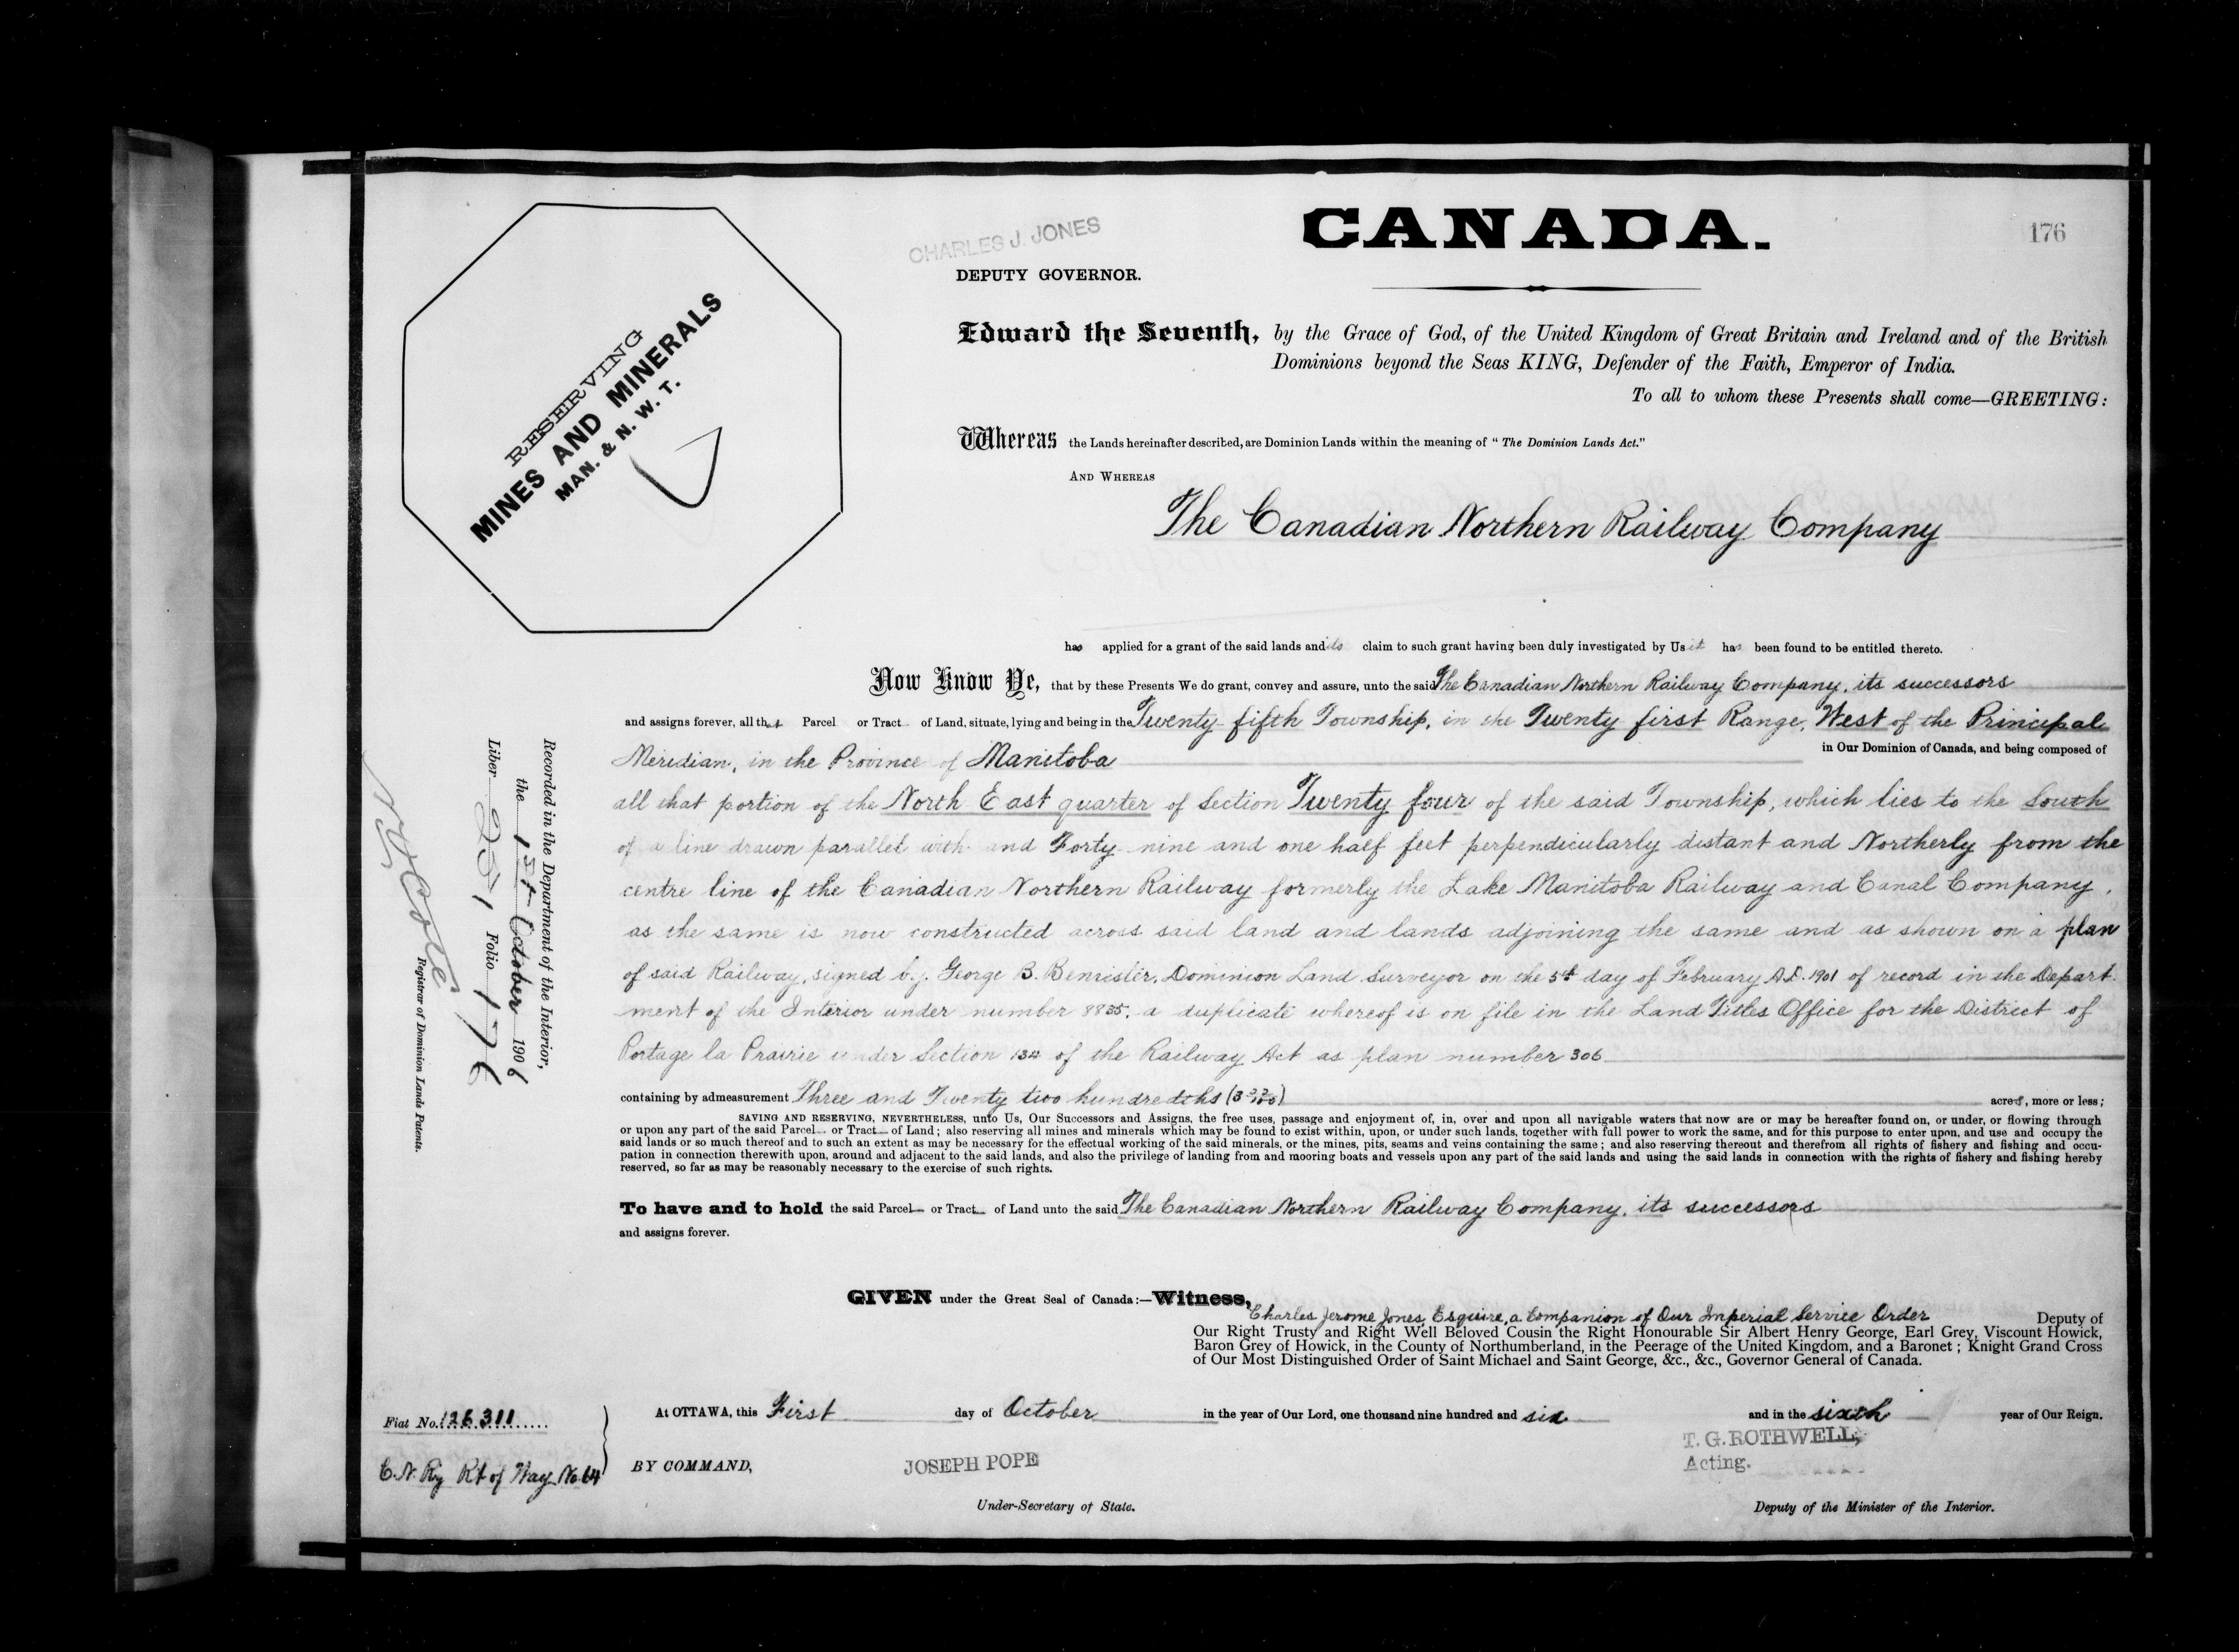 CANADA.
176
CHARLES J. JONES
DEPUTY GOVERNOR.
RESERVING
MINES AND MINERALS
MAN. & N. W. T.
Edward the Seventh, by the Grace of God, of the United Kingdom of Great Britain and Ireland and of the British
Dominions beyond the Seas KING, Defender of the Faith, Emperor of India.
To all to whom these Presents shall come—GREETING:
Whereas the Lands hereinafter described, are Dominion Lands within the meaning of "The Dominion Lands Act."
AND WHEREAS
The Canadian Northern Railway Company
has applied for a grant of the said lands and its claim to such grant having been duly investigated by Us it has been found to be entitled thereto.
Now Know Ye, that by these Presents We do grant, convey and assure, unto the said The Canadian Northern Railway Company, its successors
and assigns forever, all that Parcel or Tract of Land, situate, lying and being in the Twenty fifth Township, in the Twenty first Range, West of the Principal
Meridian, in the Province of Manitoba in Our Dominion of Canada, and being composed of
all that portion of the North East quarter of Section Twenty four of the said Township, which lies to the South
of a line drawn parallel with and Forty nine and one half feet perpendicularly distant and Northerly from the
centre line of the Canadian Northern Railway formerly the Lake Manitoba Railway and Canal Company,
as the same is now constructed across said land and lands adjoining the same and as shown on a plan
of said Railway, signed by George B. Bemister, Dominion Land Surveyor on the 5th day of February A.D. 1901 of record in the Depart-
ment of the Interior under number 8835, a duplicate whereof is on file in the Land Titles Office for the District of
Portage la Prairie under Section 134 of the Railway Act as plan number 306
containing by admeasurement Three and Twenty two hundredths (3 22/100) acres, more or less;
SAVING AND RESERVING, NEVERTHELESS, unto Us, Our Successors and Assigns, the free uses, passage and enjoyment of, in, over and upon all navigable waters that now are or may be hereafter found on, or under, or flowing through
or upon any part of the said Parcel or Tract of Land; also reserving all mines and minerals which may be found to exist within, upon, or under such lands, together with full power to work the same, and for this purpose to enter upon, and use and occupy the
said lands or so much thereof and to such an extent as may be necessary for the effectual working of the said minerals, or the mines, pits, seams and veins containing the same; and also reserving thereout and therefrom all rights of fishery and fishing and occu-
pation in connection therewith upon, around and adjacent to the said lands, and also the privilege of landing from and mooring boats and vessels upon any part of the said lands and using the said lands in connection with the rights of fishery and fishing hereby
reserved, so far as may be reasonably necessary to the exercise of such rights.
To have and to hold the said Parcel or Tract of Land unto the said The Canadian Northern Railway Company, its successors
and assigns forever.
GIVEN under the Great Seal of Canada:—Witness,
Charles Jerome Jones, Esquire, a Companion of Our Imperial Service Order Deputy of
Our Right Trusty and Right Well Beloved Cousin the Right Honourable Sir Albert Henry George, Earl Grey, Viscount Howick,
Baron Grey of Howick, in the County of Northumberland, in the Peerage of the United Kingdom, and a Baronet; Knight Grand Cross
of Our Most Distinguished Order of Saint Michael and Saint George, &c., &c., Governor General of Canada.
At OTTAWA, this First day of October in the year of Our Lord, one thousand nine hundred and six and in the sixth year of Our Reign.
BY COMMAND,
JOSEPH POPE
Under-Secretary of State.
T. G. ROTHWELL,
Acting.
Deputy of the Minister of the Interior.
Fiat No. 126311
C.N. Ry Rt of Way No. 64
Recorded in the Department of the Interior,
the 1st October 1906
Liber 251 Folio 176
N.O. Coté
Registrar of Dominion Lands Patents.